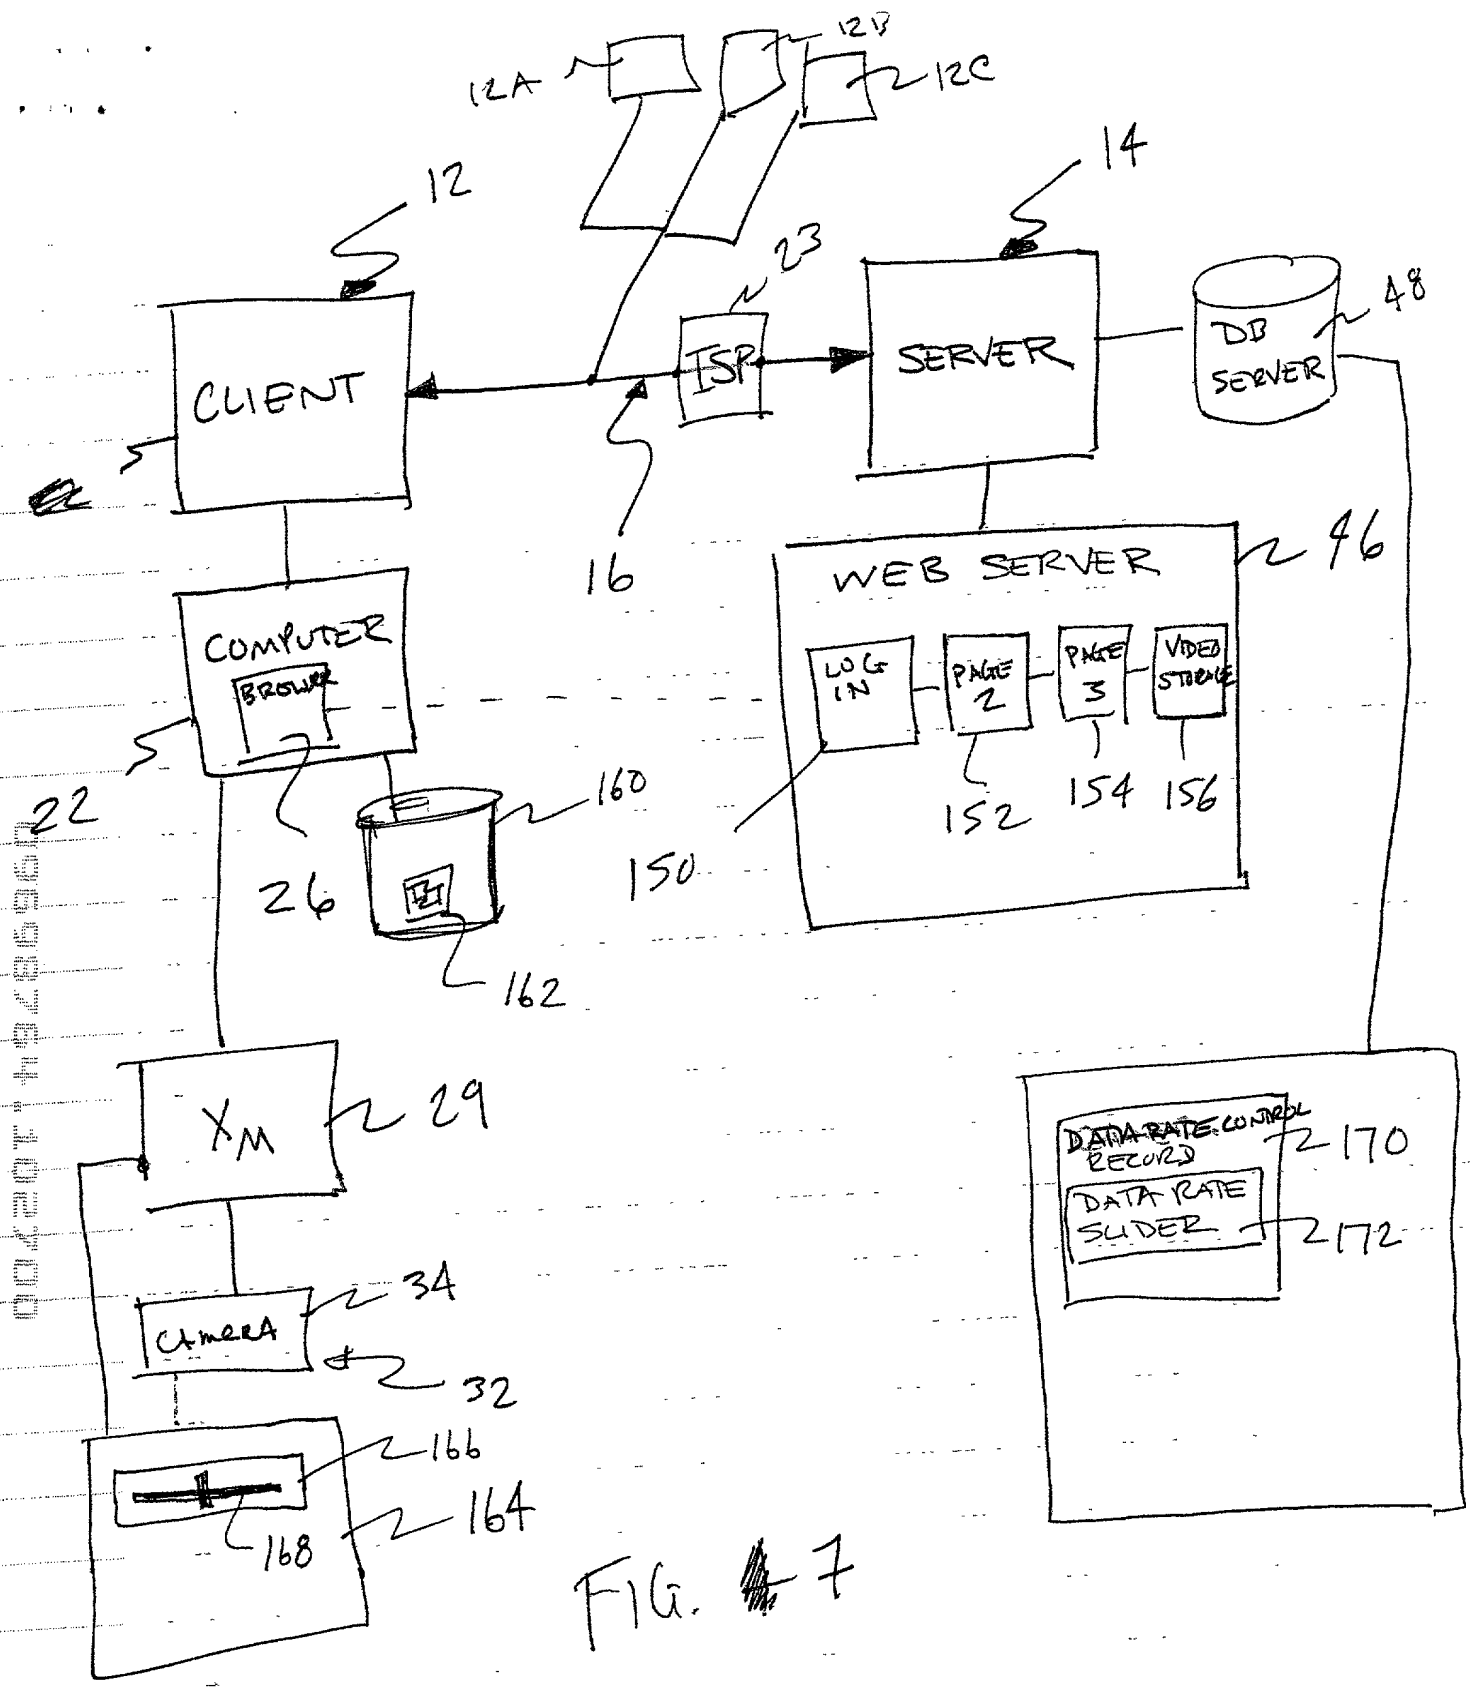 12A
12B
12C
12
14
23
CLIENT
ISP
SERVER
DB
SERVER
48
16
WEB SERVER
46
COMPUTER
BROWSER
LOG
IN
PAGE
2
PAGE
3
VIDEO
STORAGE
22
26
160
150
152
154
156
162
XM
29
DATA RATE CONTROL
RECORD
170
DATA RATE
SLIDER
172
CAMERA
34
32
166
164
168
FIG. 7